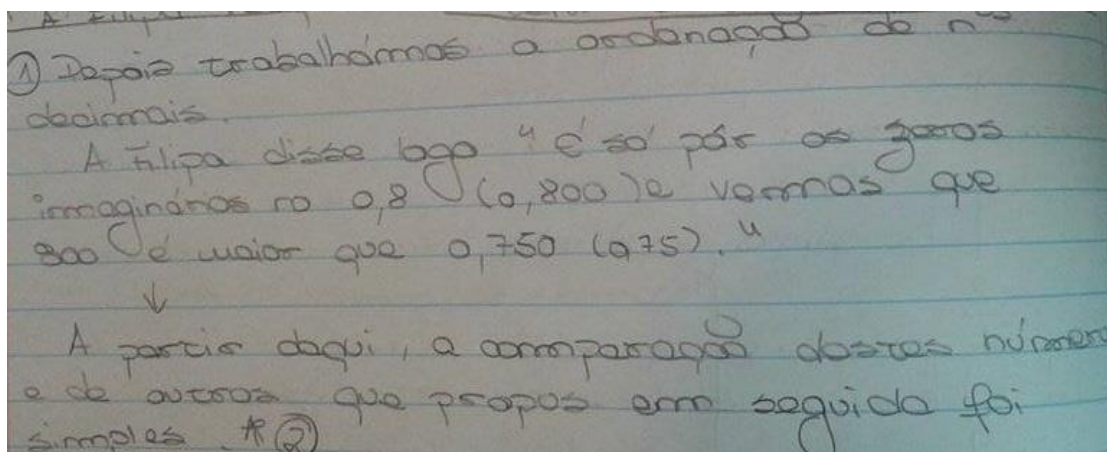 ① Depois trabalhámos a ordenação de nºs
decimais.
A Filipa disse logo "é só pôr os zeros
imaginários no 0,8 (0,800) e vermos que
800 é maior que 0,750 (0,75)."
↓
A partir daqui, a comparação destes númer
e de outros que propos em seguida foi
simples. * ②